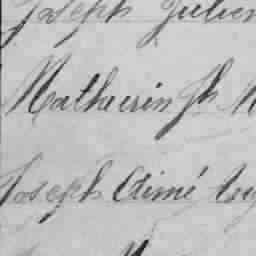 Joseph Julien
Mathurin Jh M
Joseph Aimé